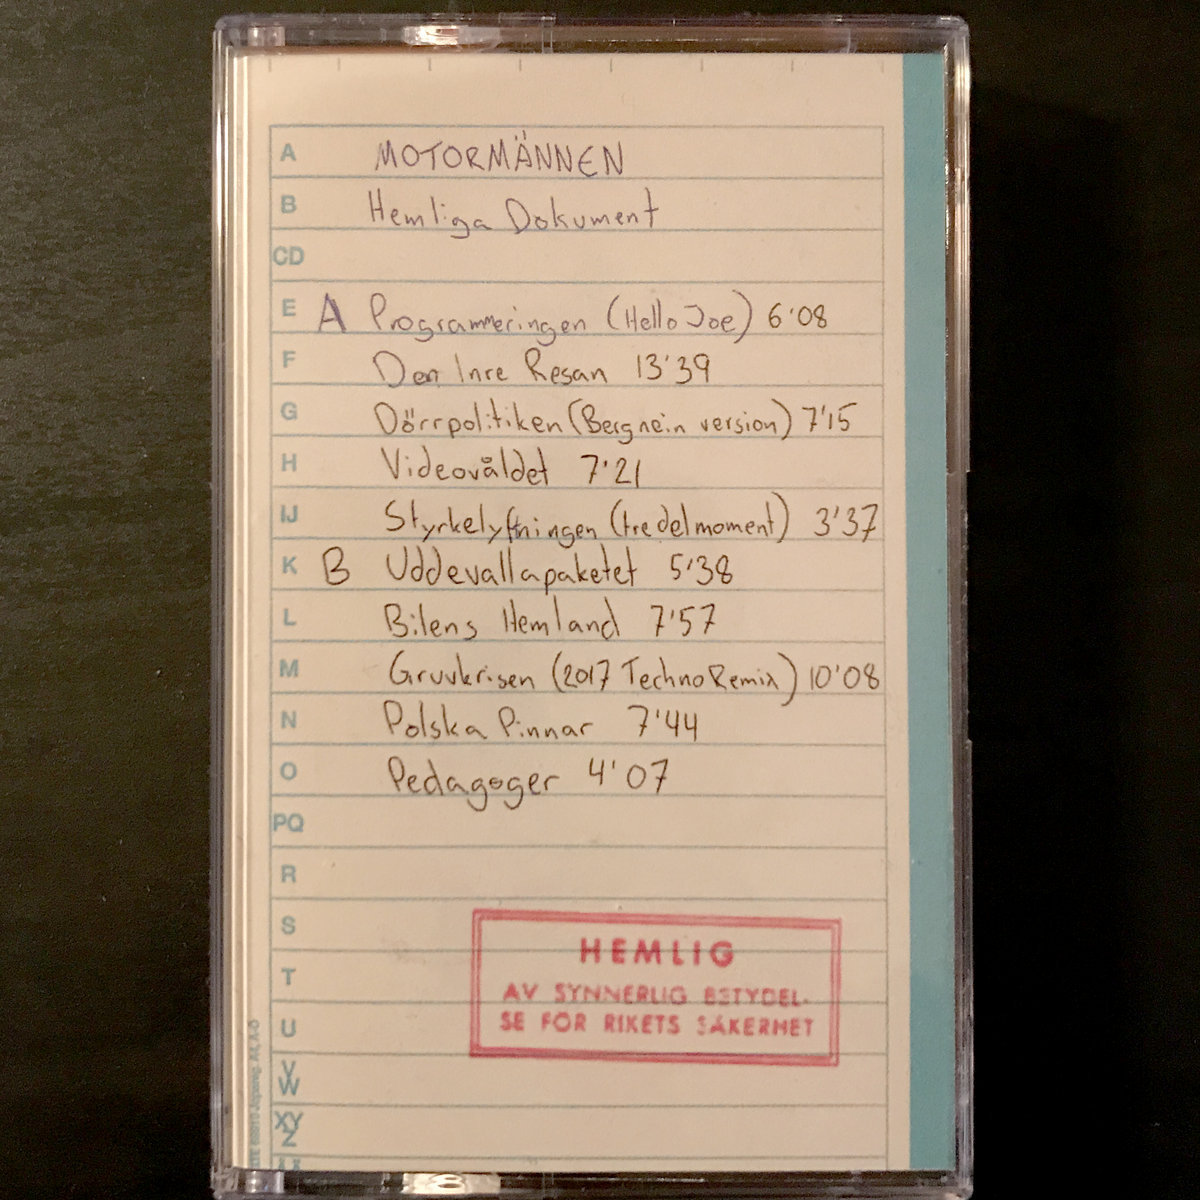 A MOTORMÄNNEN
B Hemliga Dokument
CD
E A Programmeringen (Hello Joe) 6'08
F Den Inre Resan 13'39
G Dörrpolitiken (Bergnein version) 7'15
H Videovåldet 7'21
IJ Styrkelyftningen (tredelmoment) 3'37
K B Uddevallapaketet 5'38
L Bilens Hemland 7'57
M Gruvkrisen (2017 Techno Remix) 10'08
N Polska Pinnar 7'44
O Pedagoger 4'07
PQ
R
S
T
U
V
W
XY
Z
HEMLIG
AV SYNNERLIG BETYDEL-
SE FÖR RIKETS SÄKERHET